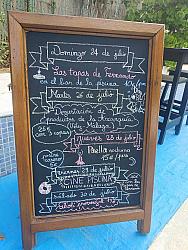 Domingo 24 de julio
Las tapas de Fernando
en el bar de la piscina
Martes 26 de julio
Degustación de
productos de la Axarquía
y de Málaga
25€
con 3 copas
Jueves 28 de julio
Paella
45€
Viernes 29 de julio
CINE PISCINA
Sábado 30 de julio